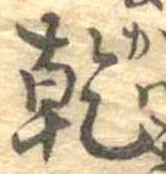 乾
かわ